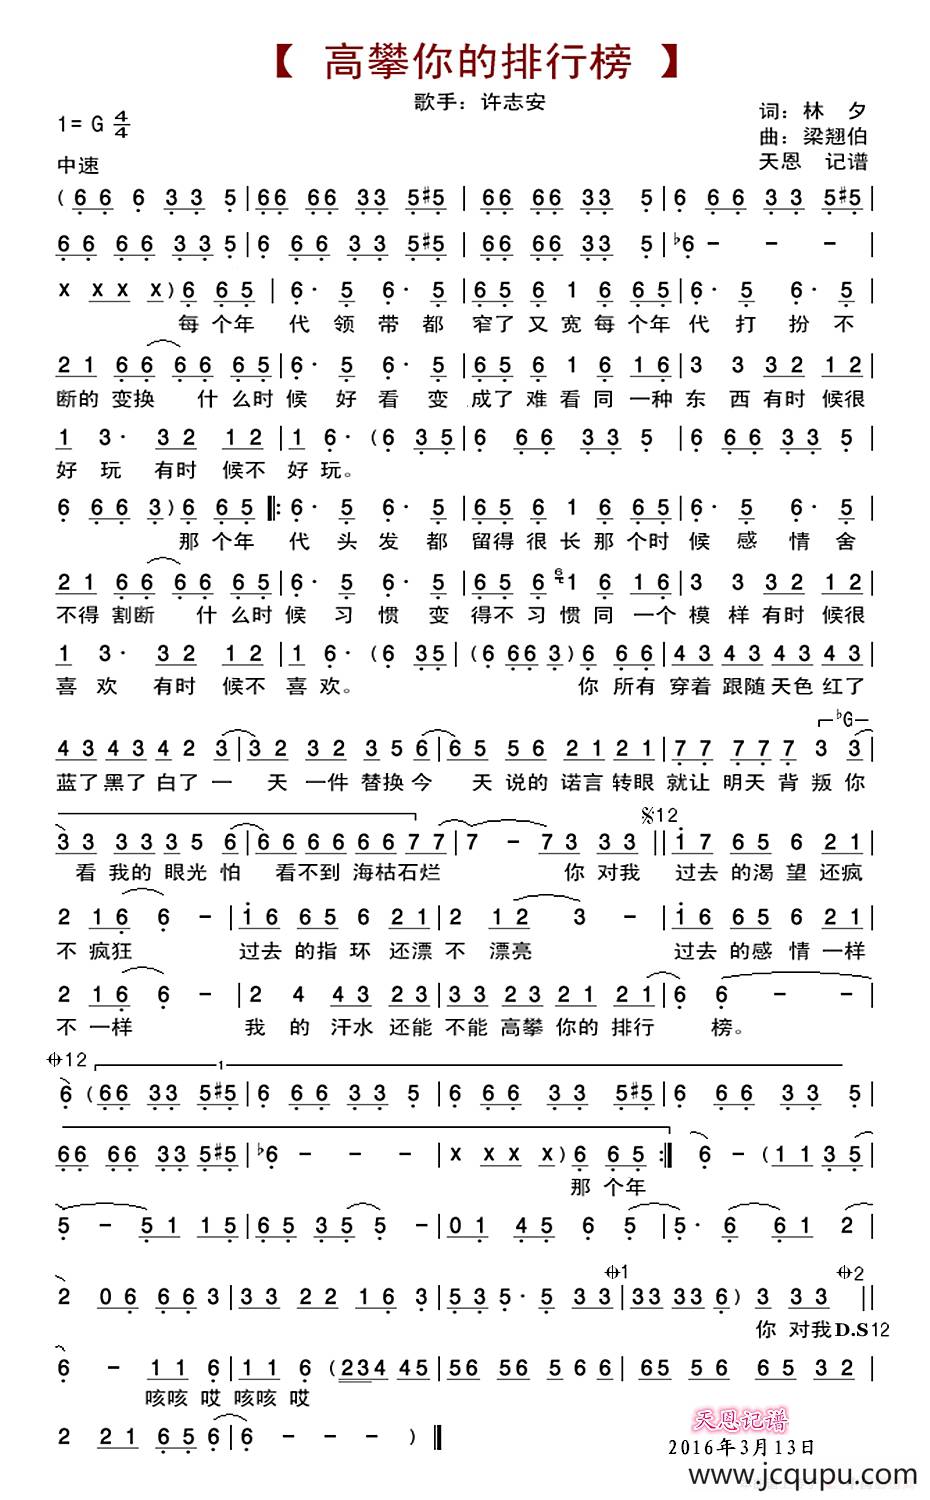 【 高攀你的排行榜 】
歌手：许志安
1= G 4/4
词：林 夕
曲：梁翘伯
中速
天恩 记谱
( 6 6 6 3 3 5 | 66 66 33 5#5 | 66 66 33 5 | 6 66 33 5#5 |
66 66 33 5 | 6 66 33 5#5 | 66 66 33 5 | ♭6 - - - |
x x x x ) 6 6 5 | 6· 5 6· 5 | 6 5 6 1 6 6 5 | 6· 5 6· 5 |
每 个年 代 领 带 都 窄了 又 宽 每 个年 代 打 扮 不
2 1 6 6 6 6 6 5 | 6· 5 6· 5 | 6 5 6 1 6 1 6 | 3 3 3 2 1 2 |
断的 变换 什 么时 候 好 看 变 成了 难 看 同 一种 东 西 有时 候很
1 3· 3 2 1 2 | 1 6· ( 6 3 5 | 6 66 33 5 | 6 66 33 5 |
好 玩 有时 候不 好 玩。
6 6 6 3 ) 6 6 5 |: 6· 5 6· 5 | 6 5 6 1 6 6 5 | 6· 5 6· 5 |
那 个年 代 头 发 都 留得 很 长 那 个时 候 感 情 舍
2 1 6 6 6 6 6 5 | 6· 5 6· 5 | 6 5 6 1 6 1 6 | 3 3 3 2 1 2 |
不得 割断 什 么时 候 习 惯 变 得不 习 惯 同 一个 模 样 有时 候很
1 3· 3 2 1 2 | 1 6· ( 6 3 5 | ( 6 66 3 ) 6 6 6 | 4 3 4 3 4 3 4 3 |
喜 欢 有时 候不 喜 欢。 你 所有 穿着 跟随 天色 红了
♭G
4 3 4 3 4 2 3 | 3 2 3 2 3 5 6 | 6 5 5 6 2 1 2 1 | 7 7 7 7 7 3 3 |
蓝了 黑了 白了 一 天 一件 替换 今 天 说的 诺言 转眼 就让 明天 背 叛 你
𝄋12
3 3 3 3 3 5 6 | 6 6 6 6 6 6 7 7 | 7 - 7 3 3 3 || 1 7 6 5 6 2 1 |
看 我的 眼光 怕 看不到 海枯石烂 你 对我 过去 的渴 望 还疯
2 1 6 6 - | 1 6 6 5 6 2 1 | 2 1 2 3 - | 1 6 6 5 6 2 1 |
不 疯狂 过去 的指 环 还漂 不 漂亮 过去 的感 情 一样
2 1 6 6 - | 2 4 4 3 2 2 | 3 3 2 2 2 1 2 1 | 6 6 - - |
不 一样 我 的 汗水 还能 不能 高攀 你的 排行 榜。
𝄌12 1
6 ( 66 33 5#5 | 6 66 33 5 | 6 66 33 5#5 | 6 66 33 5 |
66 66 33 5#5 | ♭6 - - - | x x x x ) 6 6 5 :| 6 - ( 1 1 3 5 |
那 个年
5 - 5 1 1 5 | 6 5 3 5 5 - | 0 1 4 5 6 5 | 5· 6 6 1 2 |
𝄌1 𝄌2
2 0 6 6 3 | 33 22 1 6 3 | 5 3 5· 5 33 | 33 33 6 ) 3 3 3 ||
你 对我 D.S12
6 - 1 1 6 | 1 1 6 ( 234 45 | 56 56 5 6 6 | 65 56 65 32 |
咳咳 哎 咳咳 哎
2 21 65 6 | 6 - - - ) ‖
天恩记谱
2016年3月13日
www.jcqupu.com